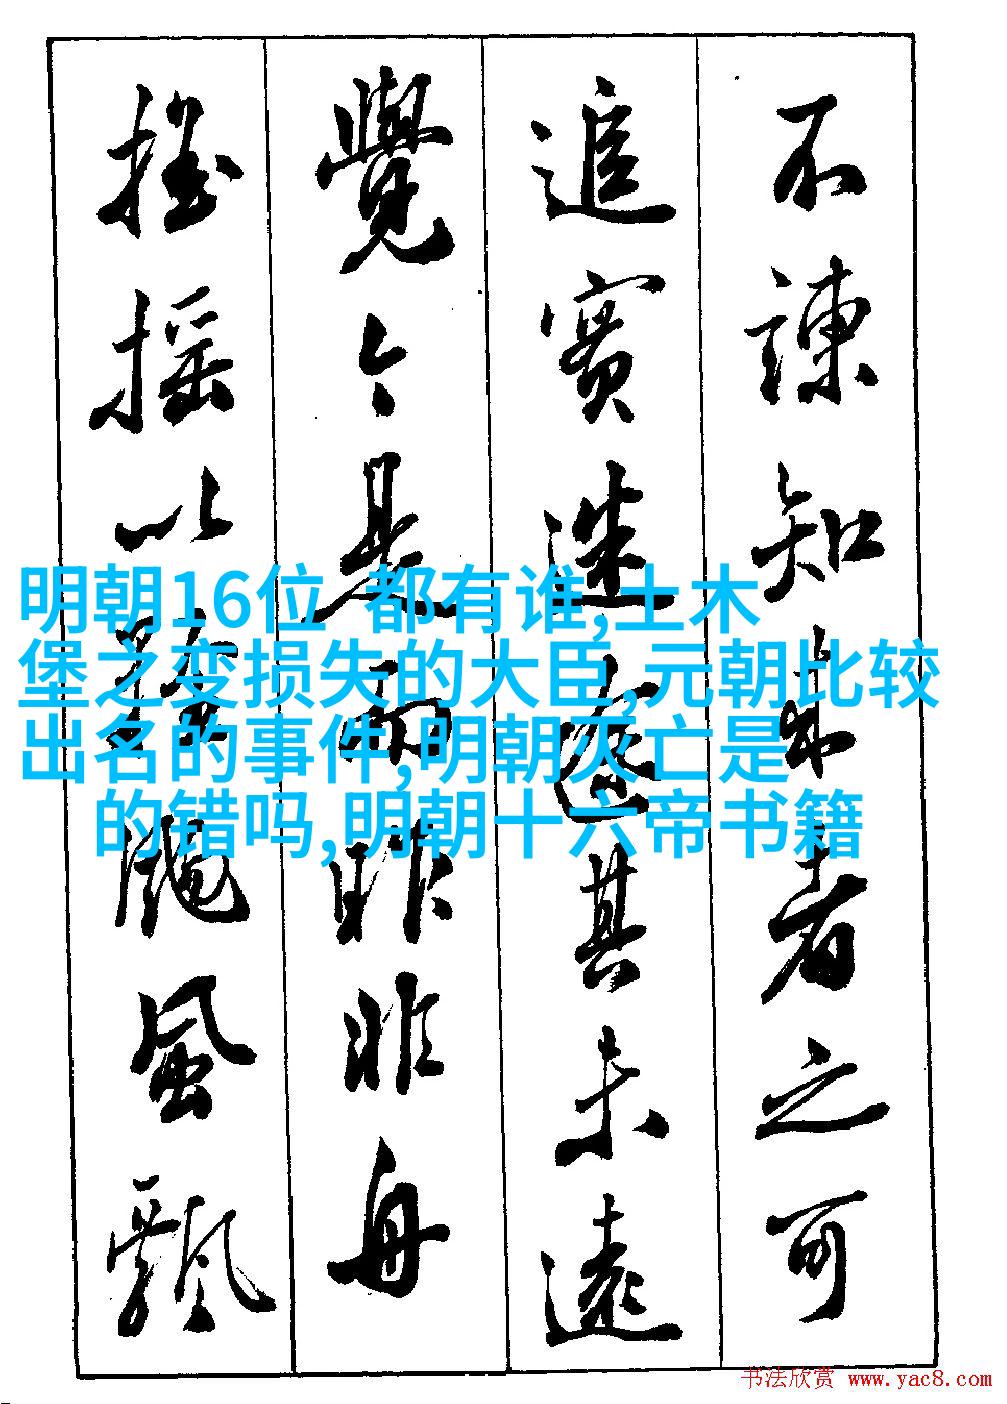 不諫知来者之可
追實迷途其未遠
覺今是而昨非舟
摇摇以輕颺風飄
明朝16位 都有谁,土木
堡之变损失的大臣,元朝比较
出名的事件,明朝灭亡是
的错吗,明朝十六帝书籍
书法欣赏 www.yac8.com